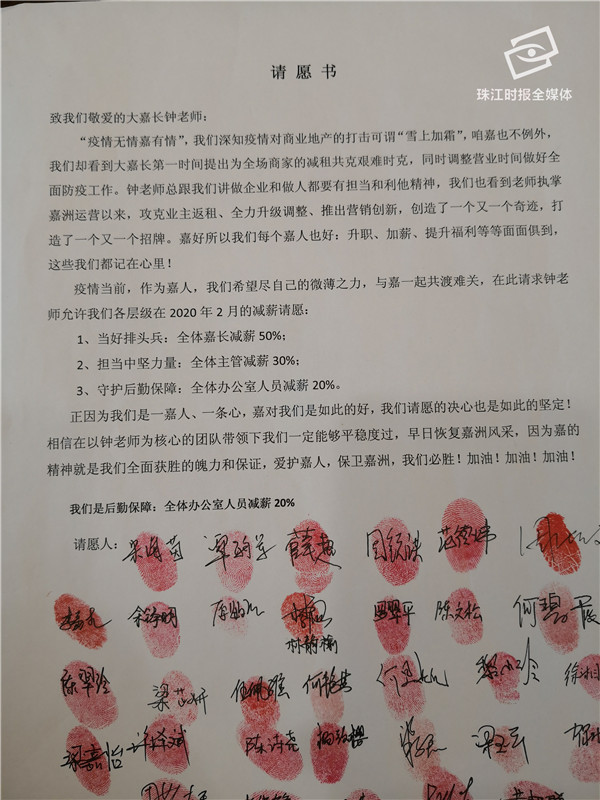 珠江时报全媒体
请愿书
致我们敬爱的大嘉长钟老师：
“疫情无情嘉有情”，我们深知疫情对商业地产的打击可谓“雪上加霜”，咱嘉也不例外，
我们却看到大嘉长第一时间提出为全场商家的减租共克艰难时克，同时调整营业时间做好全
面防疫工作。钟老师总跟我们讲做企业和做人都要有担当和利他精神，我们也看到老师执掌
嘉洲运营以来，攻克业主返租、全力升级调整、推出营销创新，创造了一个又一个奇迹，打
造了一个又一个招牌。嘉好所以我们每个嘉人也好：升职、加薪、提升福利等等面面俱到，
这些我们都记在心里！
疫情当前，作为嘉人，我们希望尽自己的微薄之力，与嘉一起共渡难关，在此请求钟老
师允许我们各层级在2020年2月的减薪请愿：
1、当好排头兵：全体嘉长减薪50%；
2、担当中坚力量：全体主管减薪30%；
3、守护后勤保障：全体办公室人员减薪20%。
正因为我们是一嘉人、一条心，嘉对我们是如此的好，我们请愿的决心也是如此的坚定！
相信在以钟老师为核心的团队带领下我们一定能够平稳度过，早日恢复嘉洲风采，因为嘉的
精神就是我们全面获胜的魄力和保证，爱护嘉人，保卫嘉洲，我们必胜！加油！加油！加油！
我们是后勤保障：全体办公室人员减薪20%
请愿人：
陈文松 何碧霞
陈翠玲
梁嘉怡 陈诗尧